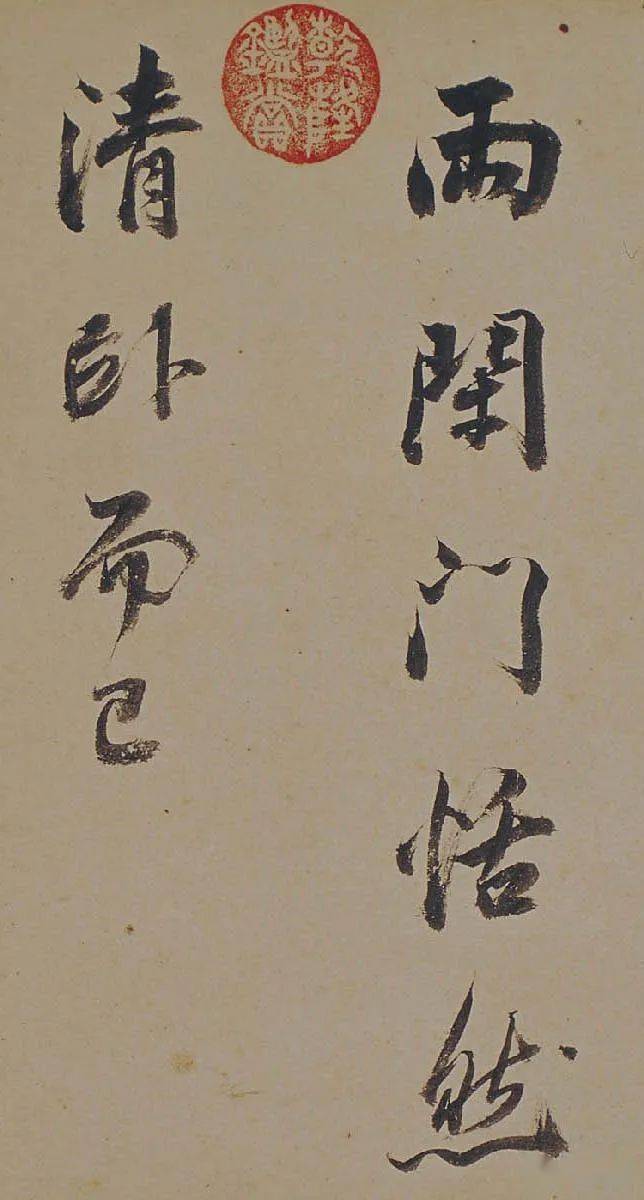 雨閑门恬然
乾隆鑑賞
清卧而已